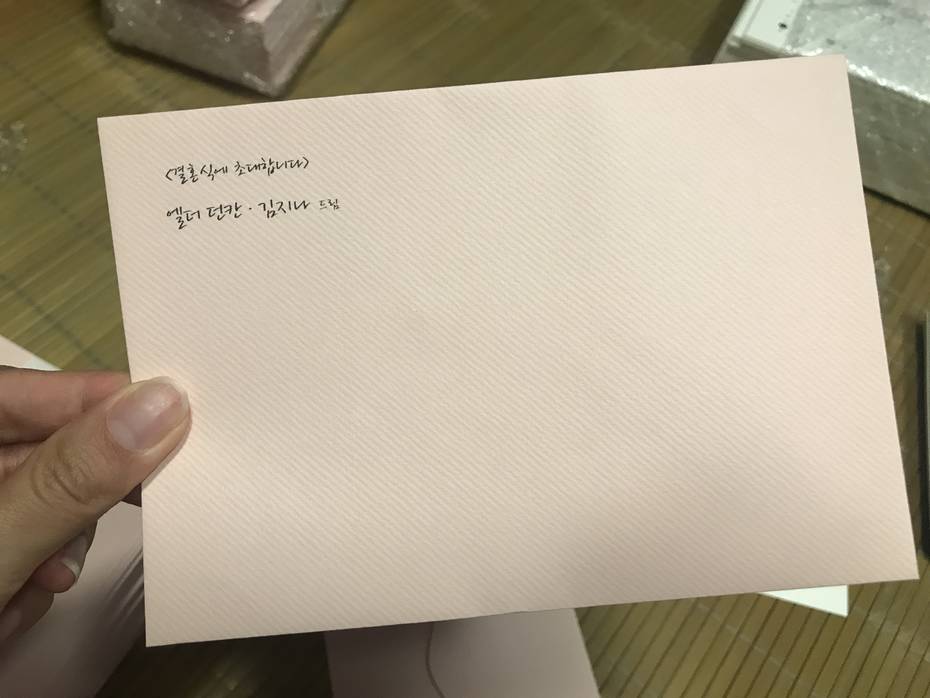 <결혼식에 초대합니다>
엘더 던칸 · 김지나 드림